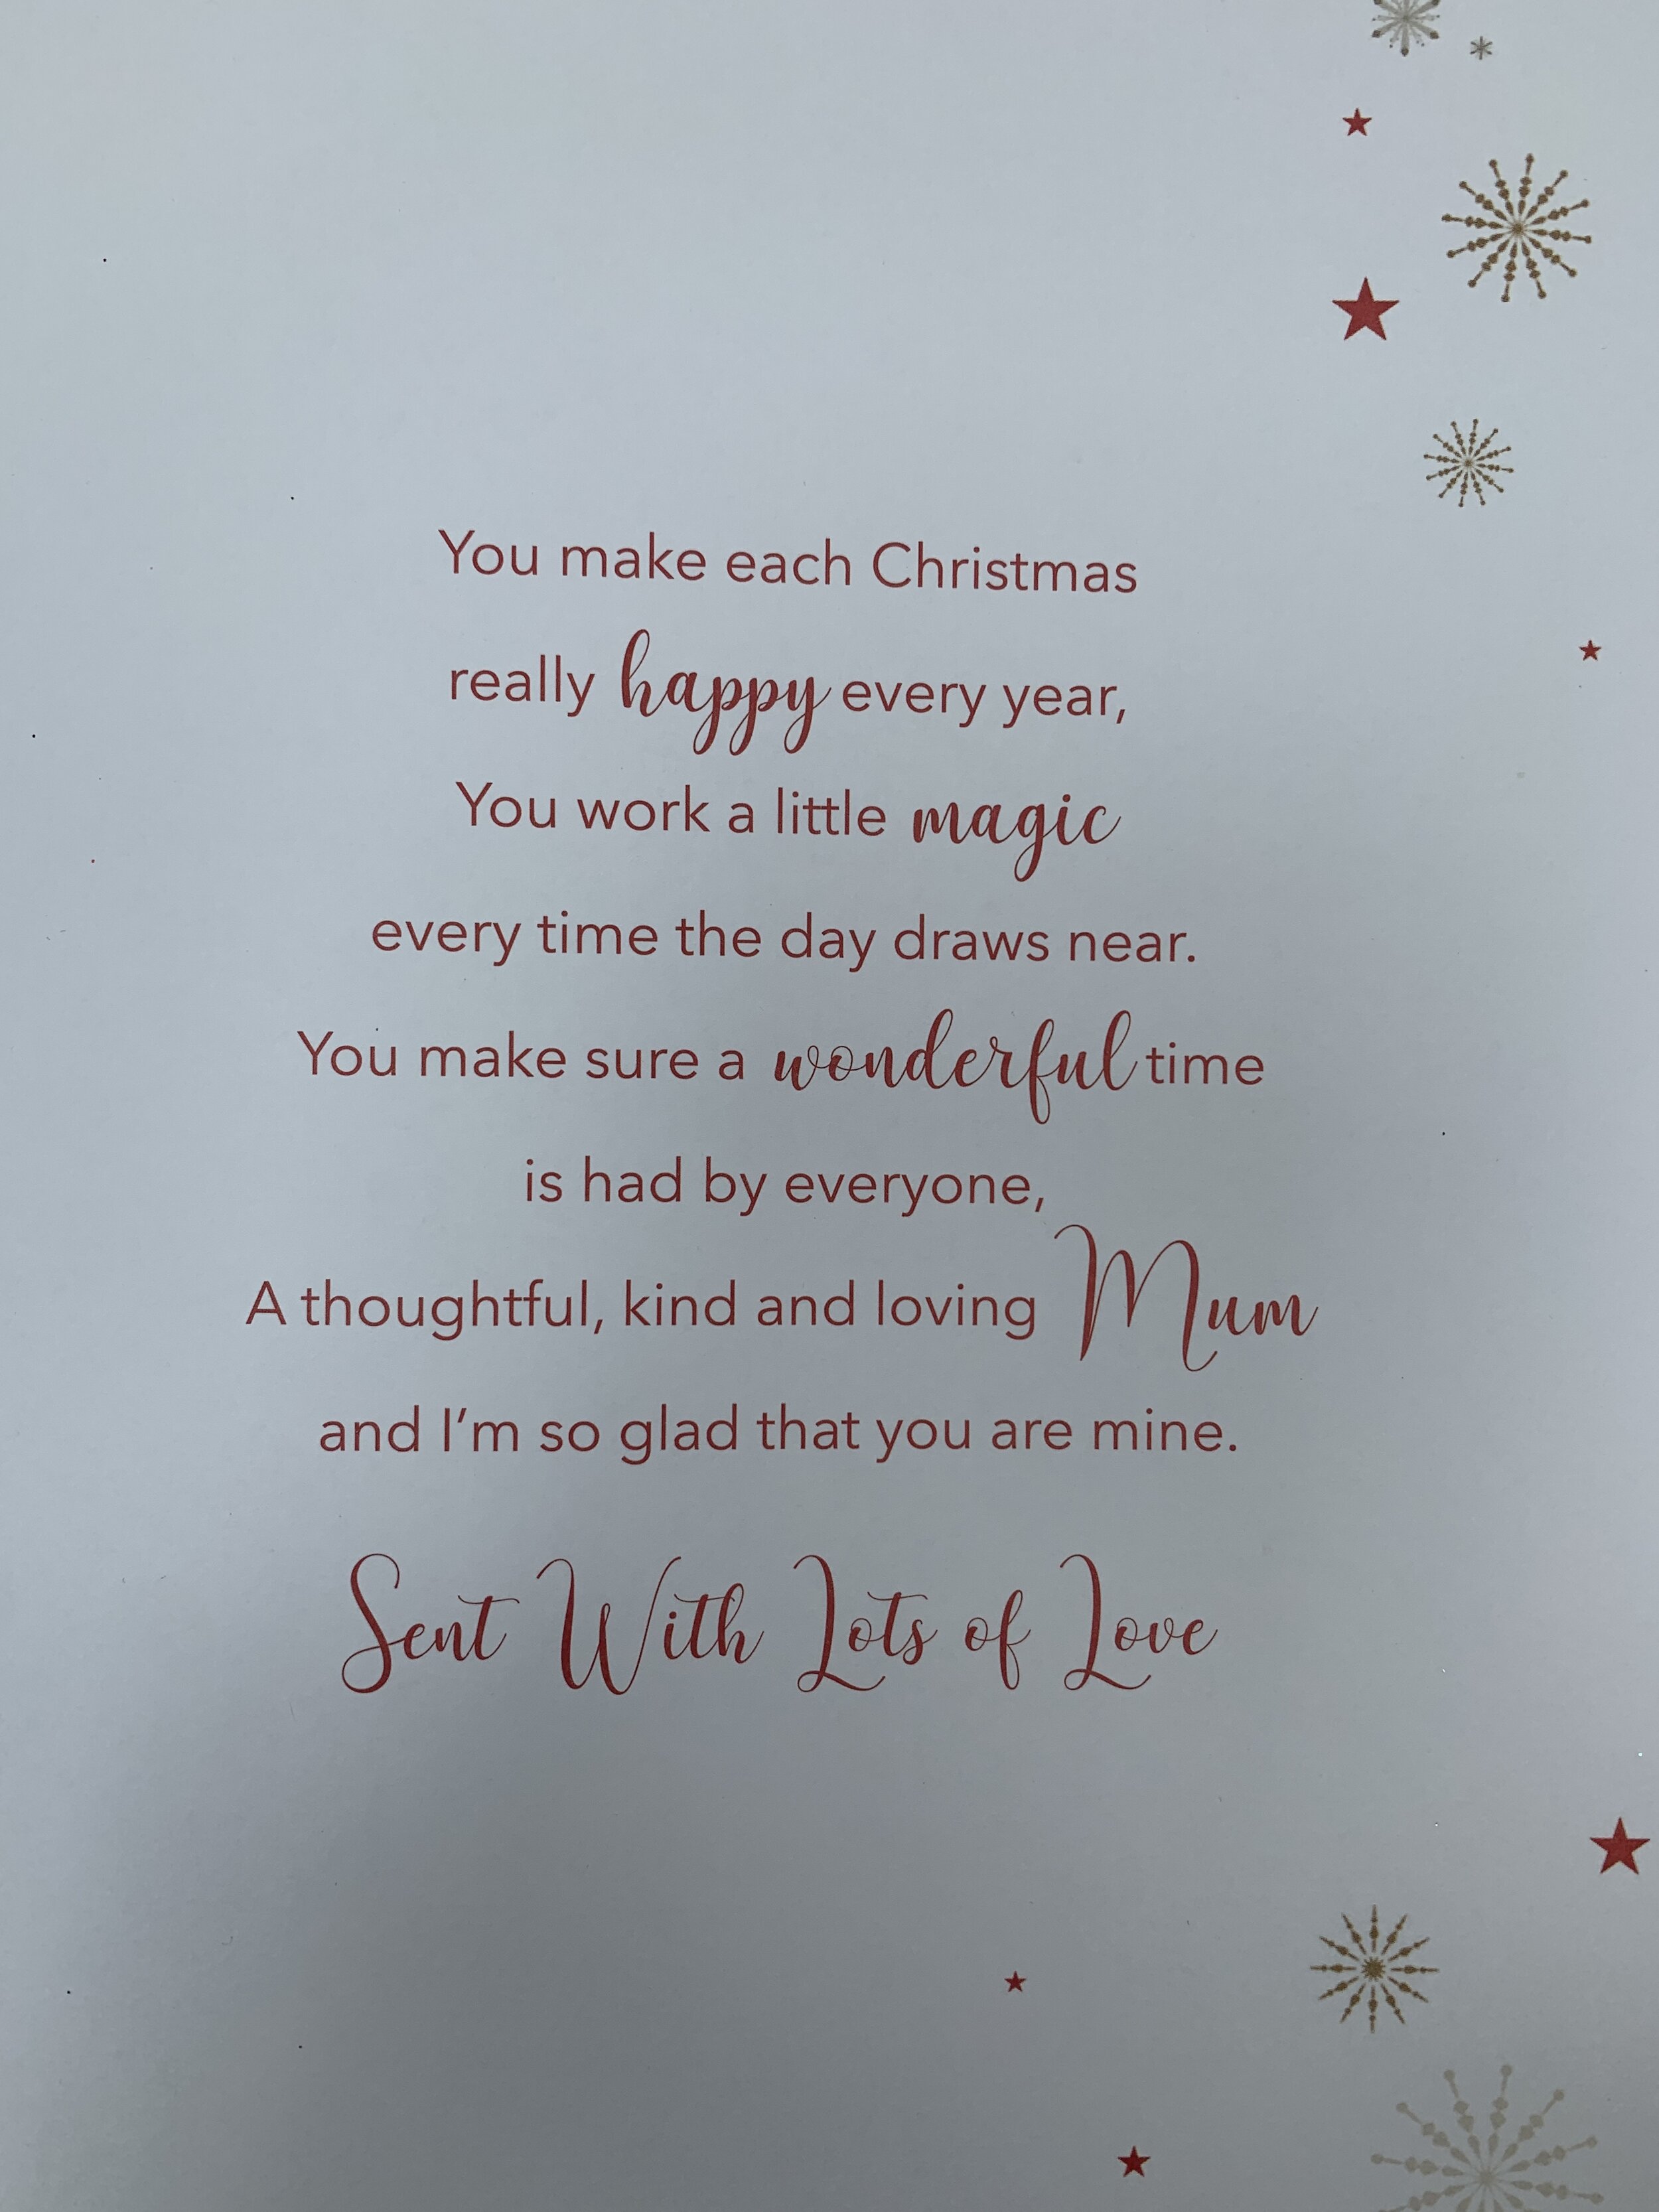 You make each Christmas
really happy every year,
You work a little magic
every time the day draws near.
You make sure a wonderful time
is had by everyone,
A thoughtful, kind and loving Mum
and I’m so glad that you are mine.
Sent With Lots of Love